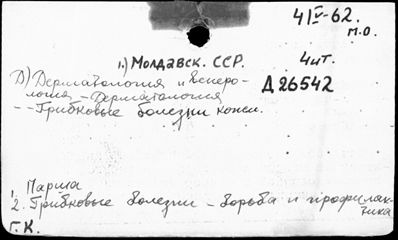 4/V-62.
М.О.
1.) Молдавск. ССР.
4шт.
D) Дерматология и венеро-
логия – Дерматология
Д26542
– – Грибковые болезни кожи.
1. Парша
2. Грибковые болезни – борьба и профилак-
тика
Г. К.